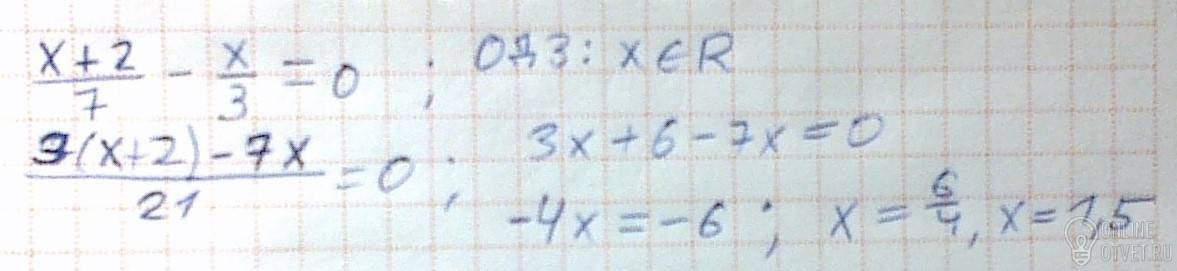 (x+2)/7 - x/3 = 0 ; ОДЗ: x∈R
(3(x+2)-7x)/21 = 0 ; 3x+6-7x=0
-4x=-6 ; x=6/4, x=1,5
ONLINE
OTVET.RU